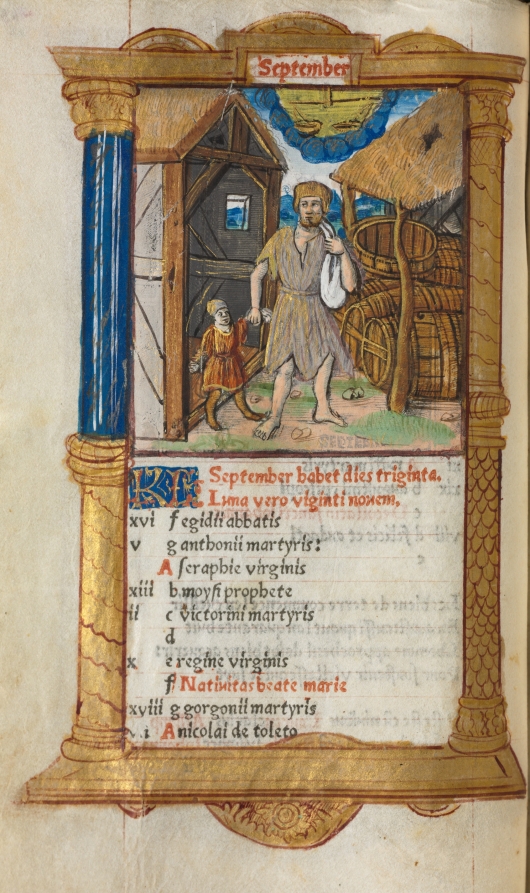 September
KL September habet dies triginta.
Luna vero viginti novem,
xvi f egidii abbatis
v g anthonii martyris:
A seraphie virginis
xiii b moysi prophete
ii c victorini martyris
d
x e regine virginis
f Nativitas beate marie
xviii g gorgonii martyris
vii A nicolai de toleto